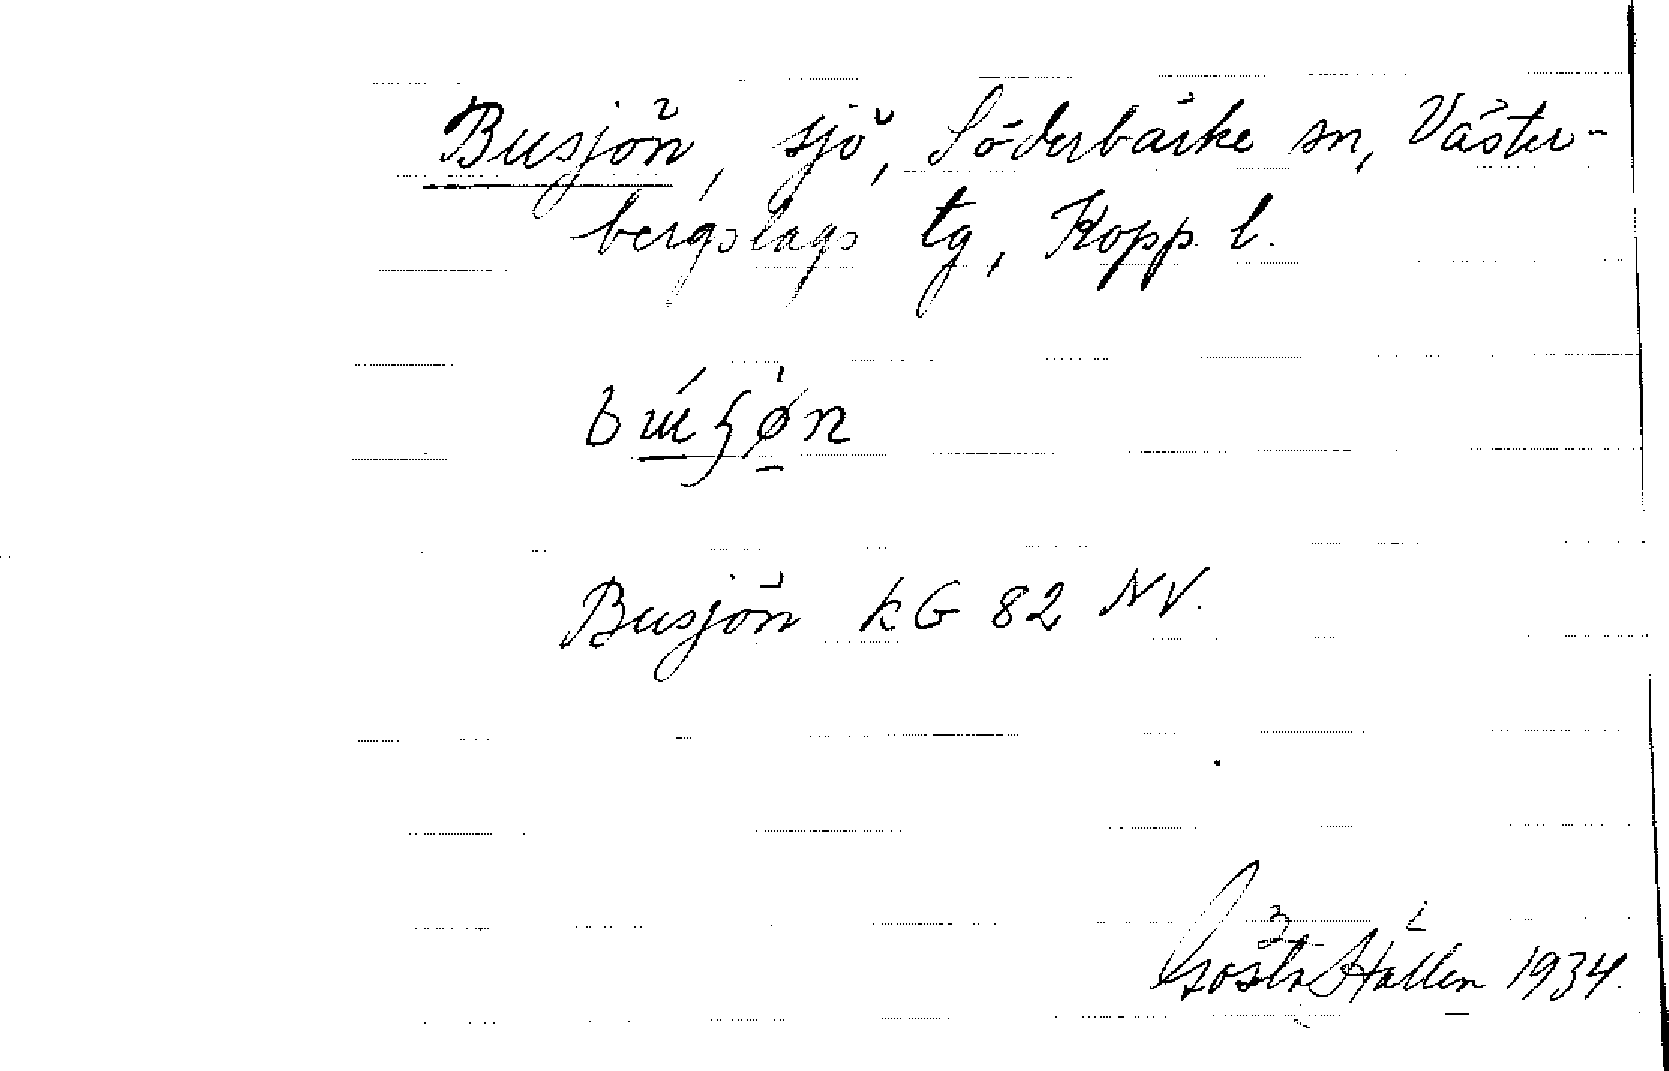 Busjön, sjö, Söderbärke sn, Väster-
bergslags tg, Kopp. l.
Busjön kG 82 NV.
Gösta Hallén 1934.